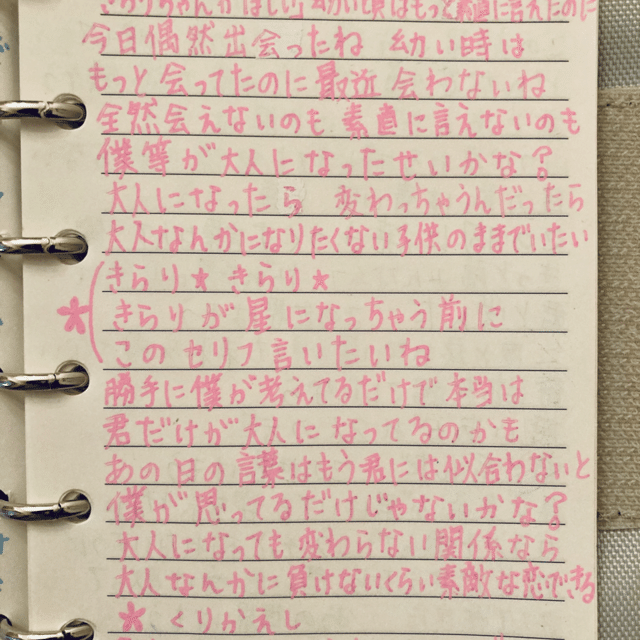 きらりちゃんがほしい 幼い頃はもっと素直に言えたのに
今日偶然出会ったね 幼い時は
もっと会ってたのに最近会わないね
全然会えないのも 素直に言えないのも
僕等が大人になったせいかな?
大人になったら 変わっちゃうんだったら
大人なんかになりたくない子供のままでいたい
きらり★きらり★
*きらりが星になっちゃう前に
このセリフ言いたいね
勝手に僕が考えてるだけで本当は
君だけが大人になってるのかも
あの日の言葉はもう君には似合わないと
僕が思ってるだけじゃないかな?
大人になっても変わらない関係なら
大人なんかに負けないくらい素敵な恋できる
* くりかえし